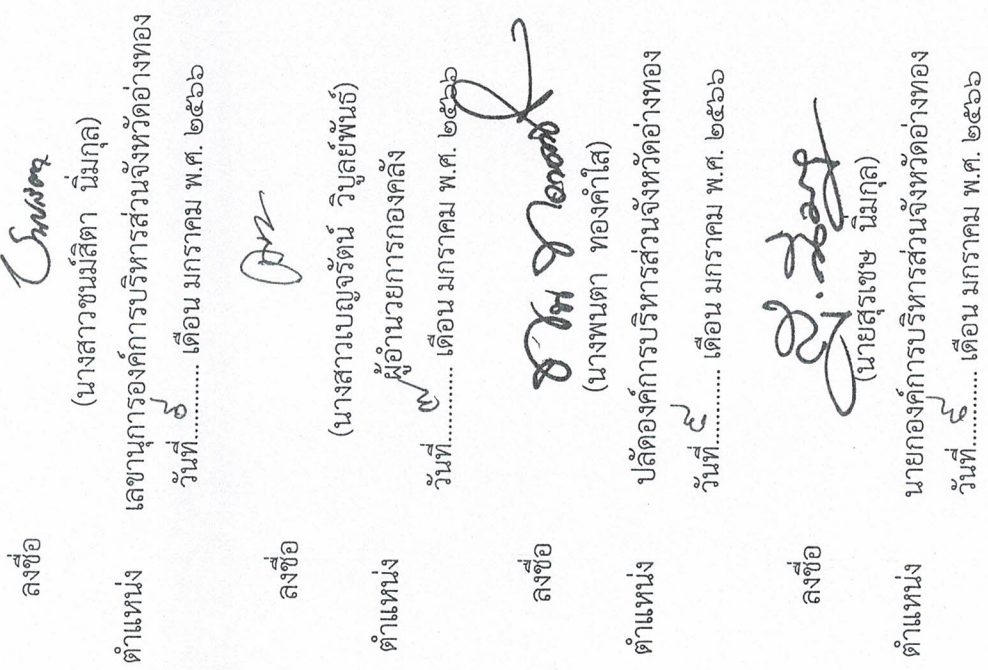 ลงชื่อ
(นางสาวชนม์สิตา นิ่มกุล)
ตำแหน่ง เลขานุการองค์การบริหารส่วนจังหวัดอ่างทอง
วันที่........ เดือน มกราคม พ.ศ. ๒๕๖๖
ลงชื่อ
(นางสาวเบญจรัตน์ วิบูลย์พันธ์)
ตำแหน่ง ผู้อำนวยการกองคลัง
วันที่........ เดือน มกราคม พ.ศ. ๒๕๖๖
ลงชื่อ
(นางพนตา ทองคำใส)
ตำแหน่ง ปลัดองค์การบริหารส่วนจังหวัดอ่างทอง
วันที่........ เดือน มกราคม พ.ศ. ๒๕๖๖
ลงชื่อ
(นายสุรเชษ นิ่มกุล)
ตำแหน่ง นายกองค์การบริหารส่วนจังหวัดอ่างทอง
วันที่........ เดือน มกราคม พ.ศ. ๒๕๖๖